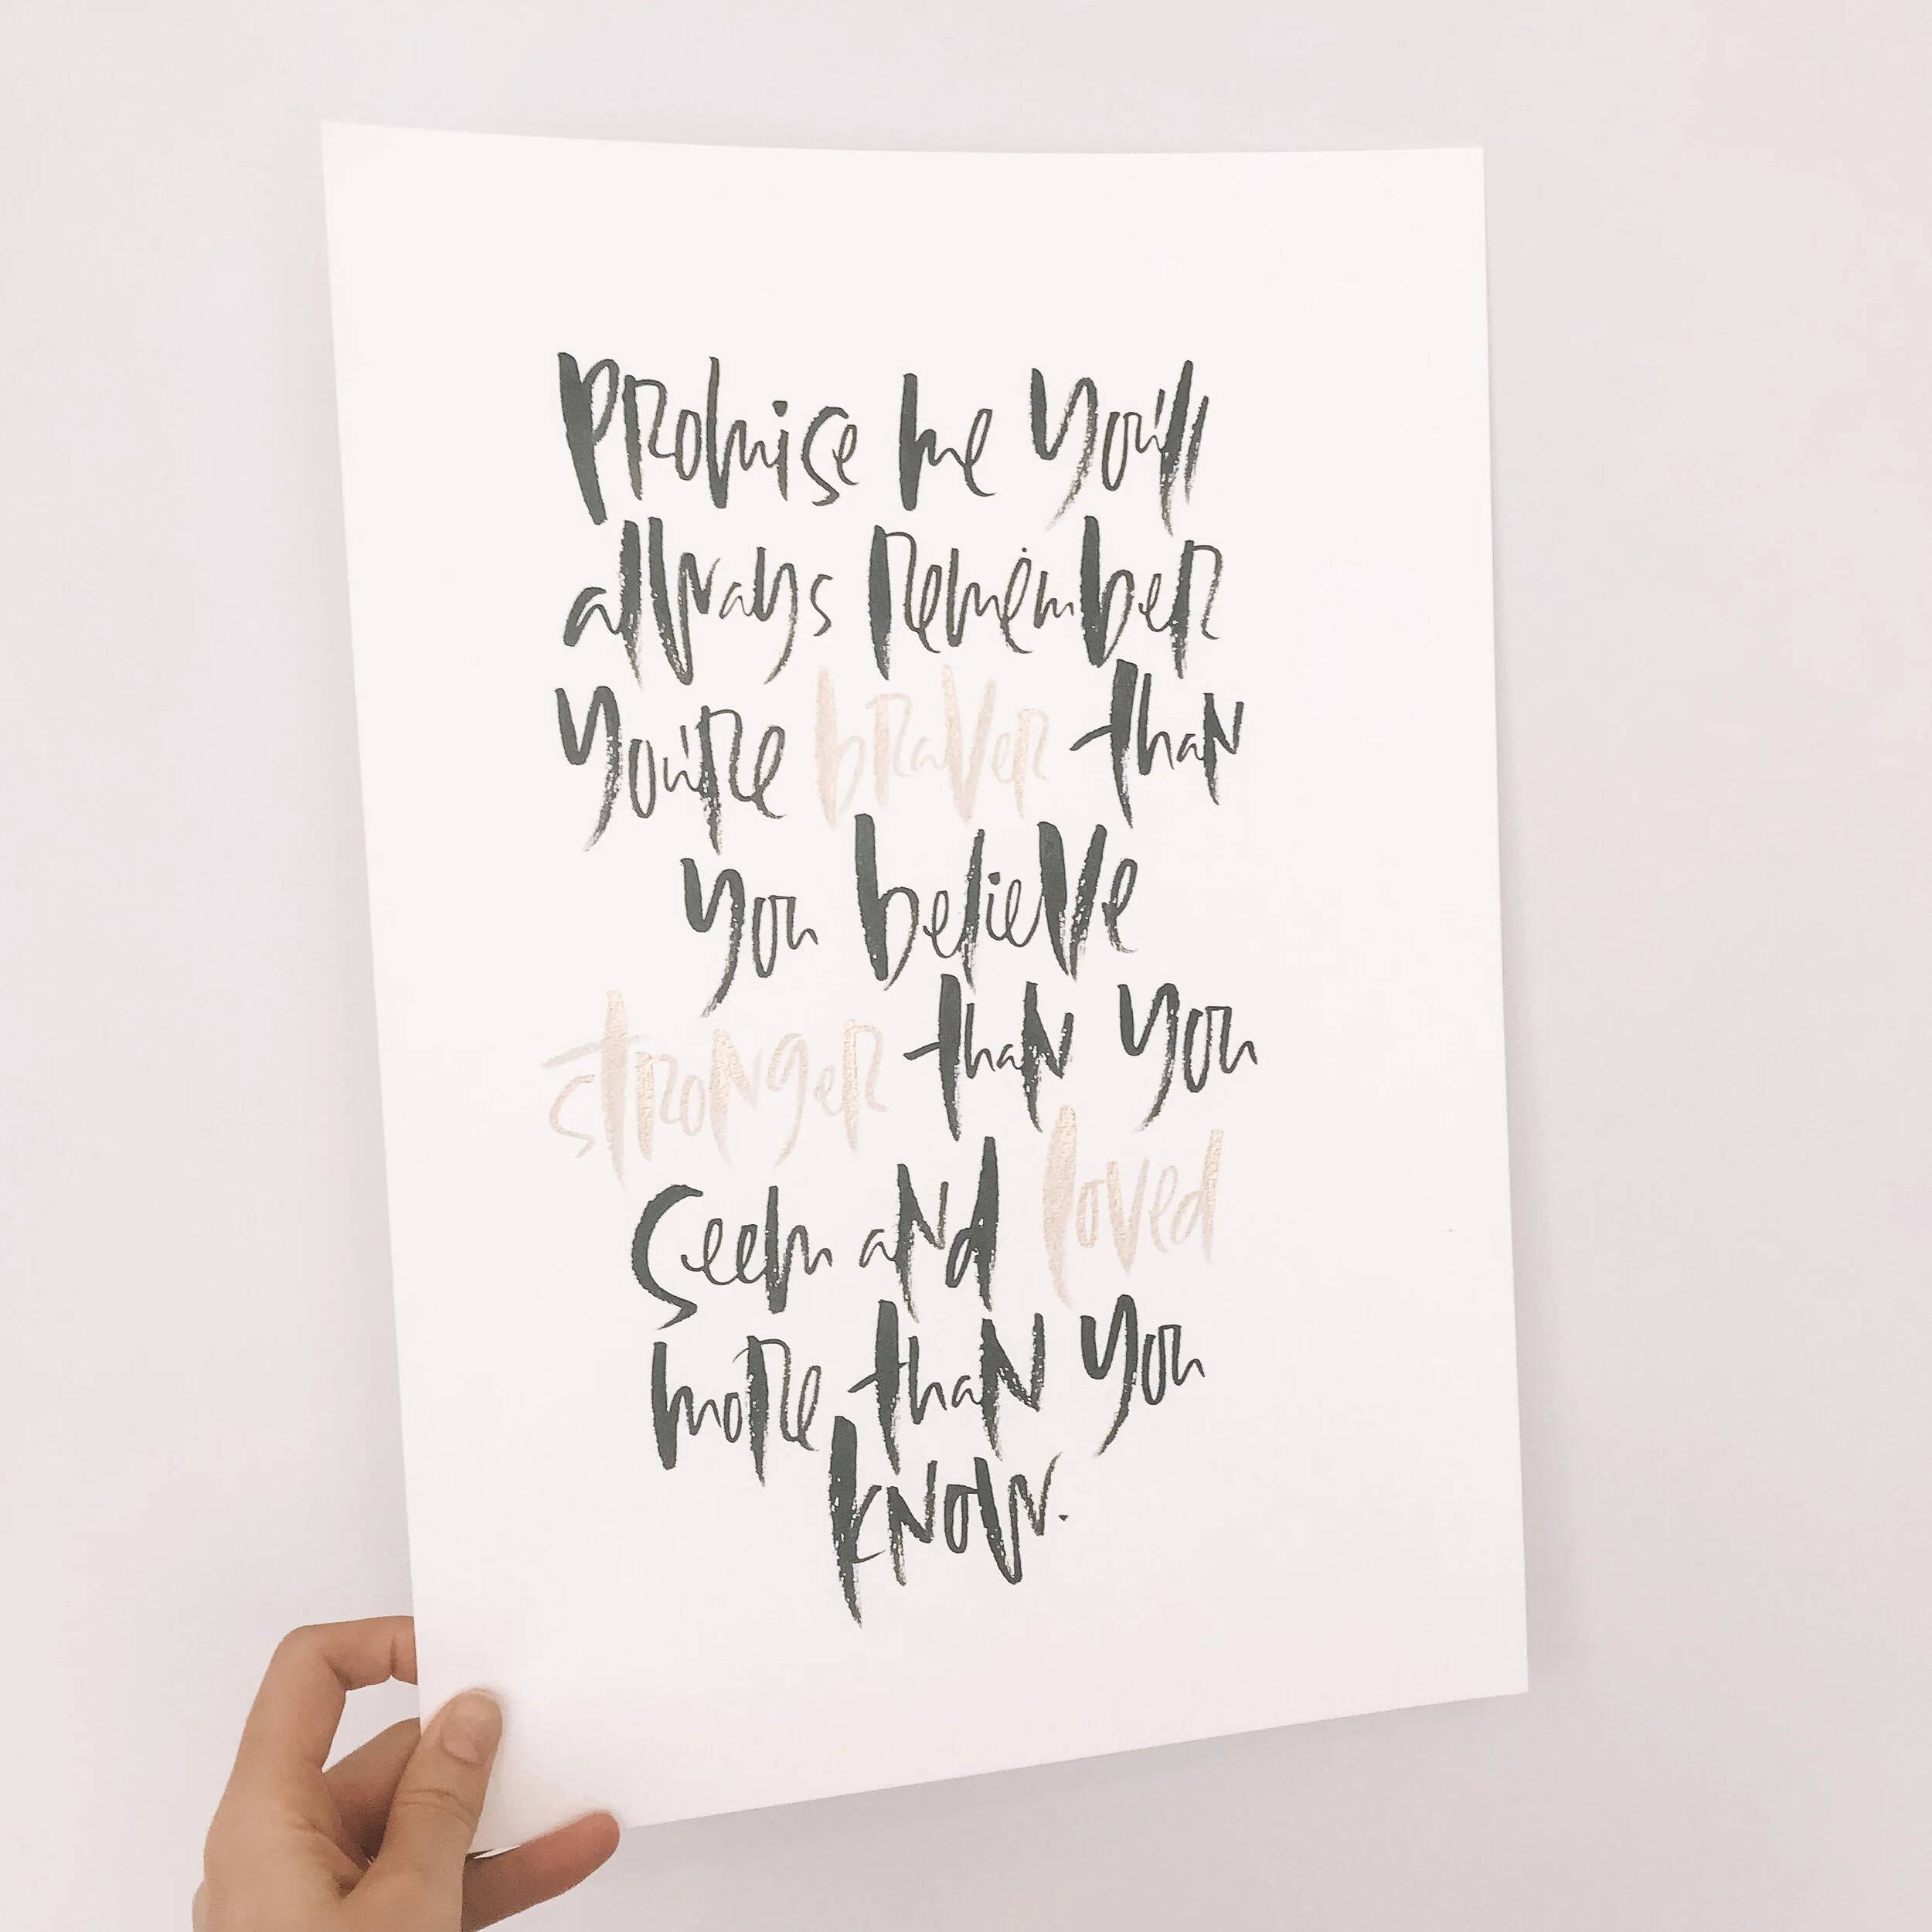 Promise me you'll
always remember
you're braver than
you believe
stronger than you
seem and loved
more than you
know.